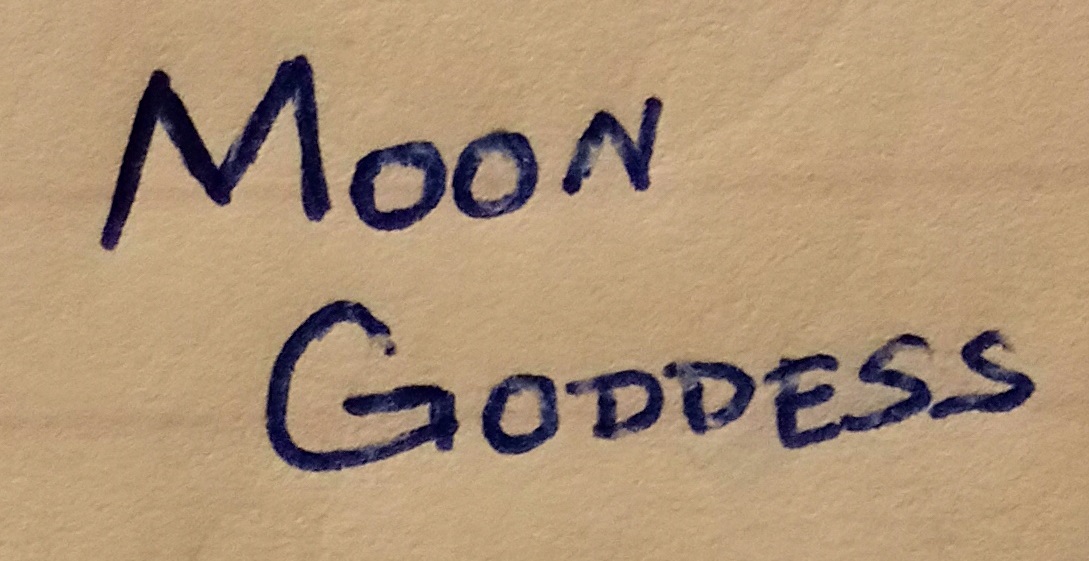 MOON
GODDESS